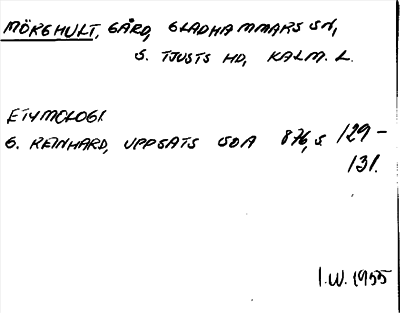 MÖRGHULT, GÅRD, GLADHAMMARS SN,
S. TJUSTS HD, KALM. L.
ETYMOLOGI.
G. REINHARD, UPPSATS SOA 876, S 129-
131.
I.W. 1955